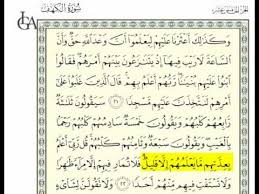 سُورَةُ الكَهْفِ
وَكَذَٰلِكَ أَعْثَرْنَا عَلَيْهِمْ لِيَعْلَمُوٓا۟ أَنَّ وَعْدَ ٱللَّهِ حَقٌّ وَأَنَّ
ٱلسَّاعَةَ لَا رَيْبَ فِيهَآ إِذْ يَتَنَٰزَعُونَ بَيْنَهُمْ أَمْرَهُمْ فَقَالُوا۟
ٱبْنُوا۟ عَلَيْهِم بُنْيَٰنًا رَّبُّهُمْ أَعْلَمُ بِهِمْ قَالَ ٱلَّذِينَ غَلَبُوا۟
عَلَىٰٓ أَمْرِهِمْ لَنَتَّخِذَنَّ عَلَيْهِم مَّسْجِدًا ٢١ سَيَقُولُونَ ثَلَٰثَةٌ
رَّابِعُهُمْ كَلْبُهُمْ وَيَقُولُونَ خَمْسَةٌ سَادِسُهُمْ كَلْبُهُمْ رَجْمًۢا
بِٱلْغَيْبِ وَيَقُولُونَ سَبْعَةٌ وَثَامِنُهُمْ كَلْبُهُمْ قُل رَّبِّىٓ أَعْلَمُ
بِعِدَّتِهِم مَّا يَعْلَمُهُمْ إِلَّا قَلِيلٌ فَلَا تُمَارِ فِيهِمْ إِلَّا مِرَآءً ظَٰهِرًا
وَلَا تَسْتَفْتِ فِيهِم مِّنْهُمْ أَحَدًا ٢٢ وَلَا تَقُولَنَّ لِشَا۟ىْءٍ